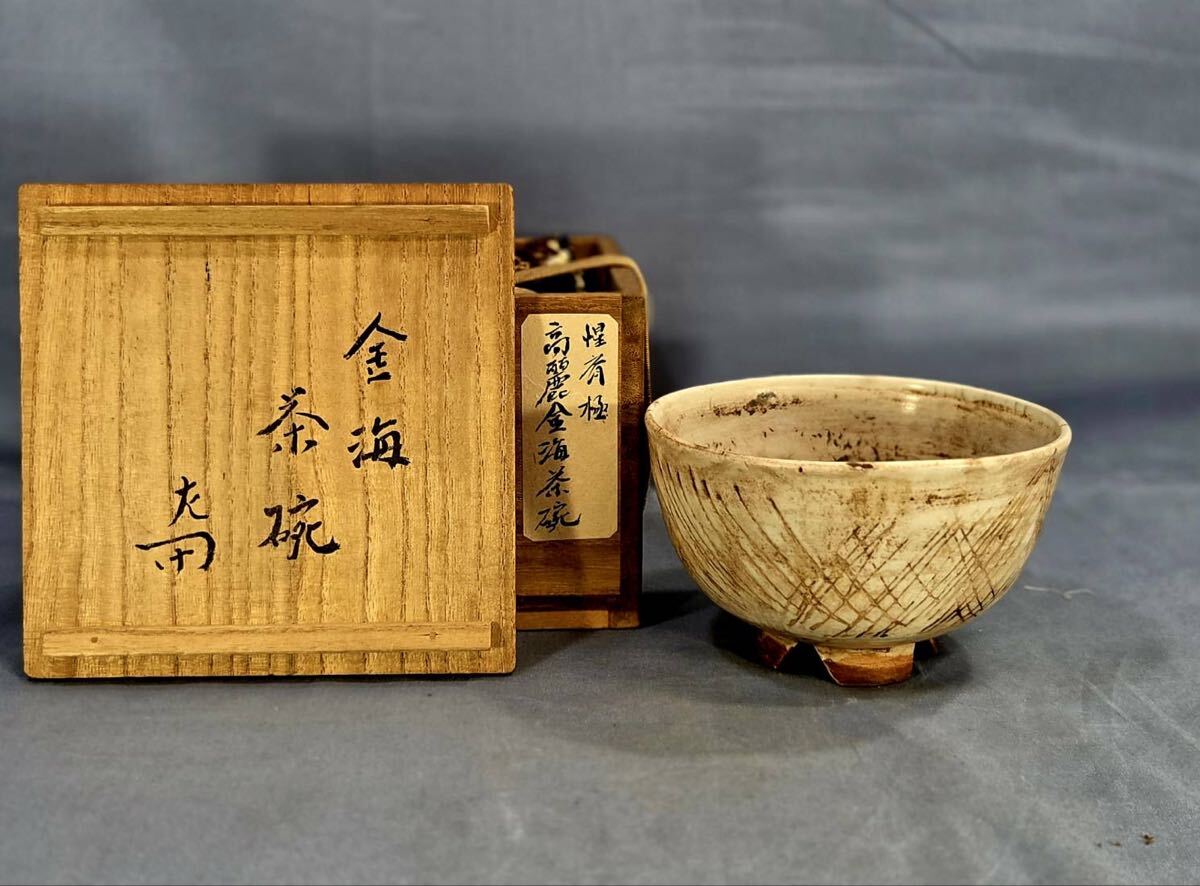 金海
茶碗
左
惺斎極
高麗金海茶碗